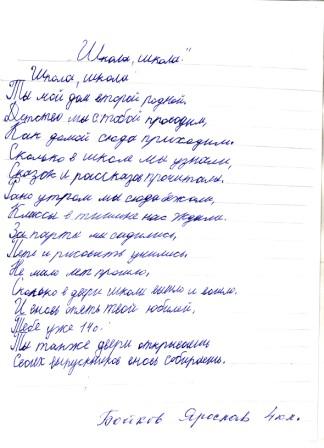 "Школа, школа"
Школа, школа
Ты мой дом второй родной.
Детство мы с тобой проводим,
Как домой сюда приходим.
Сколько в школе мы узнали,
Сказок и рассказов прочитали.
Рано утром мы сюда бежали,
Классы в тишине нас ждали.
За парты мы садились,
Петь и рисовать учились.
Не мало лет прошло,
Сколько в двери школы вышло и вошло.
И вновь опять твой юбилей,
Тебе уже 140.
Ты также двери открываешь
Своих выпускников вновь собираешь.
Бойков Ярослав 4 кл.